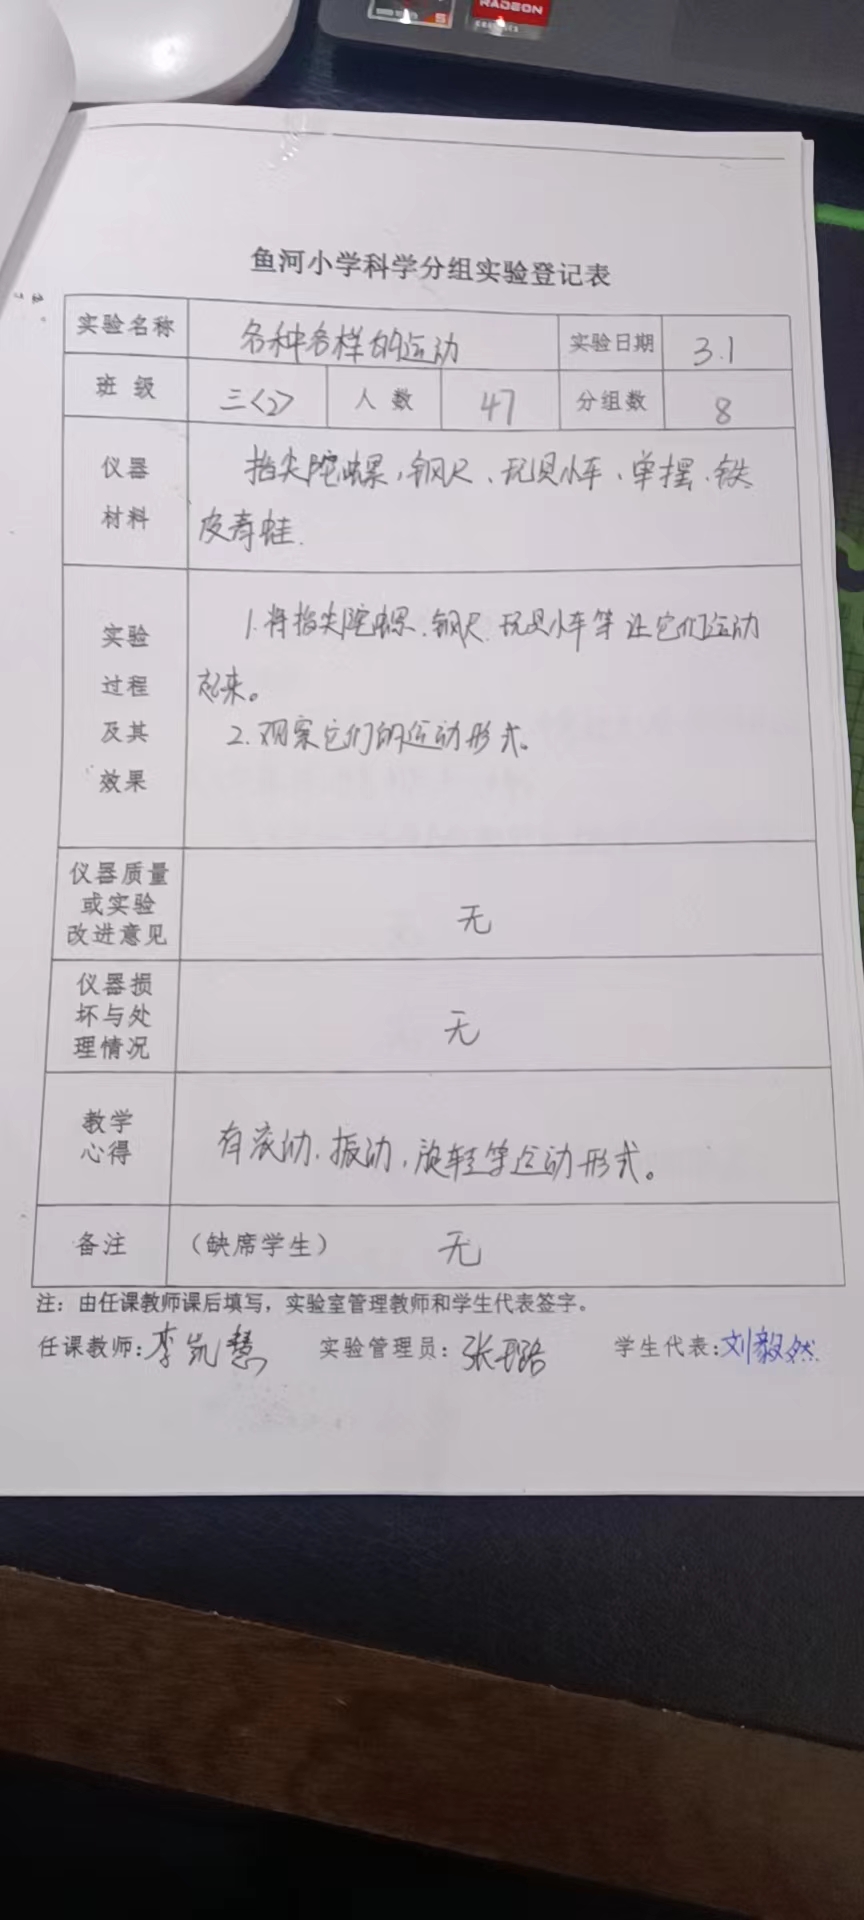 RADEON
GRAPHICS
5
鱼河小学科学分组实验登记表
实验名称 各种各样的运动 实验日期 3.1
班 级 三<2> 人 数 47 分组数 8
仪器
材料
指尖陀螺、钢尺、玩具小车、单摆、铁
皮青蛙.
实验
过程
及其
效果
1.将指尖陀螺、钢尺、玩具小车等让它们运动
起来。
2.观察它们的运动形式。
仪器质量
或实验
改进意见
无
仪器损
坏与处
理情况
无
教学
心得
有滚动、振动、旋转等运动形式。
备注 （缺席学生） 无
注：由任课教师课后填写，实验室管理教师和学生代表签字。
任课教师:李凯慧 实验管理员:张璐 学生代表:刘毅然